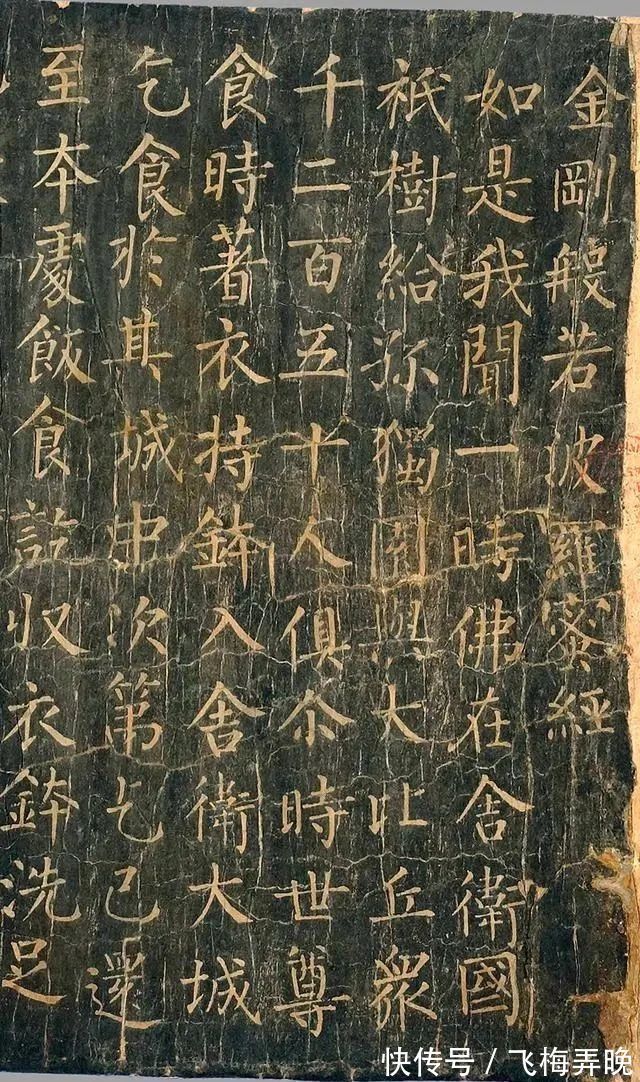 金剛般若波羅蜜經
如是我聞一時佛在舍衛國
祇樹給孤獨園與大比丘眾
千二百五十人俱尒時世尊
食時著衣持鉢入舍衛大城
乞食於其城中次第乞已還
至本處飯食訖収衣鉢洗足
快传号／飞梅弄晚